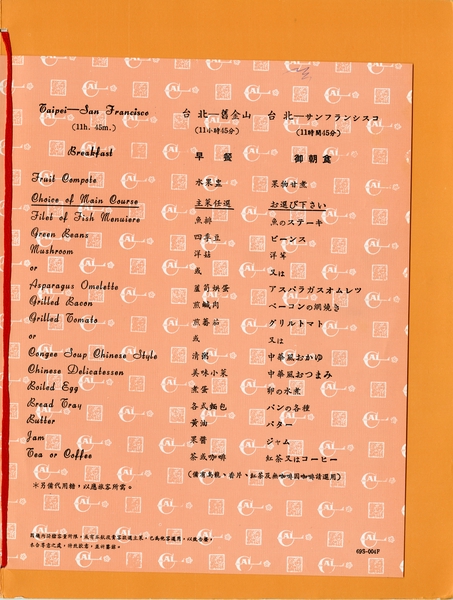 Taipei—San Francisco 台北—舊金山 台北—サンフランシスコ
(11h. 45m.) (11小時45分) (11時間45分)
Breakfast 早餐 御朝食
Fruit Compote 水果盅 果物甘煮
Choice of Main Course 主菜任選 お選び下さい
Filet of Fish Menuiere 魚排 魚のステーキ
Green Beans 四季豆 ビーンス
Mushroom 洋菇 洋茸
or 或 又は
Asparagus Omelette 蘆筍烘蛋 アスパラガスオムレツ
Grilled Bacon 煎鹹肉 ベーコンの網焼き
Grilled Tomato 煎蕃茄 グリルトマト
or 或 又は
Congee Soup Chinese Style 清粥 中華風おかゆ
Chinese Delicatessen 美味小菜 中華風おつまみ
Boiled Egg 煮蛋 卵の水煮
Bread Tray 各式麵包 パンの各種
Butter 黃油 バター
Jam 果醬 ジャム
Tea or Coffee 茶或咖啡 紅茶又はコーヒー
(備有烏龍、香片、紅茶及無咖啡因咖啡請選用)
＊另備代用糖，以應旅客所需。
因機內儲藏容量所限，或有不敷政貴客款選主菜，已為他客選用，以致告罄，
未合尊意之處，特致歉意，並祈鑒諒。
69S-004F
CAL